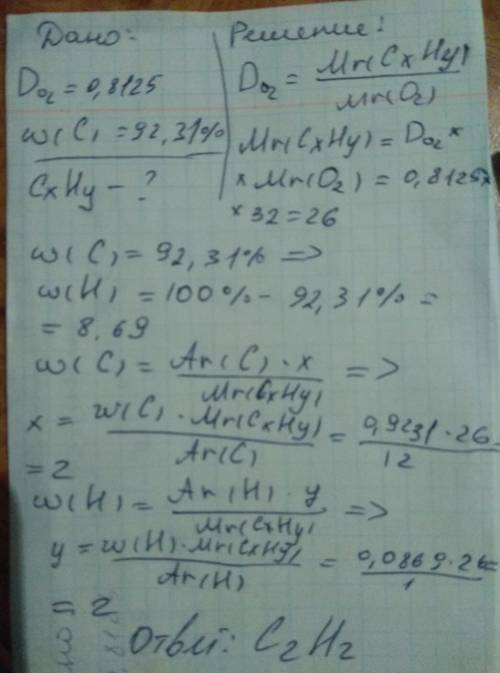 Дано:
D₀₂ = 0,8125
w(C) = 92,31%
CxHy - ?
Решение:
D₀₂ = Mr(CxHy) / Mr(O₂)
Mr(CxHy) = D₀₂ ×
× Mr(O₂) = 0,8125×
× 32 = 26
w(C) = 92,31% =>
w(H) = 100% - 92,31% =
= 8,69
w(C) = Ar(C) · x / Mr(CxHy) =>
x = w(C) · Mr(CxHy) / Ar(C) = 0,9231 · 26 / 12
= 2
w(H) = Ar(H) · y / Mr(CxHy) =>
y = w(H) · Mr(CxHy) / Ar(H) = 0,0869 · 26 / 1 =
= 2
Ответ: C₂H₂